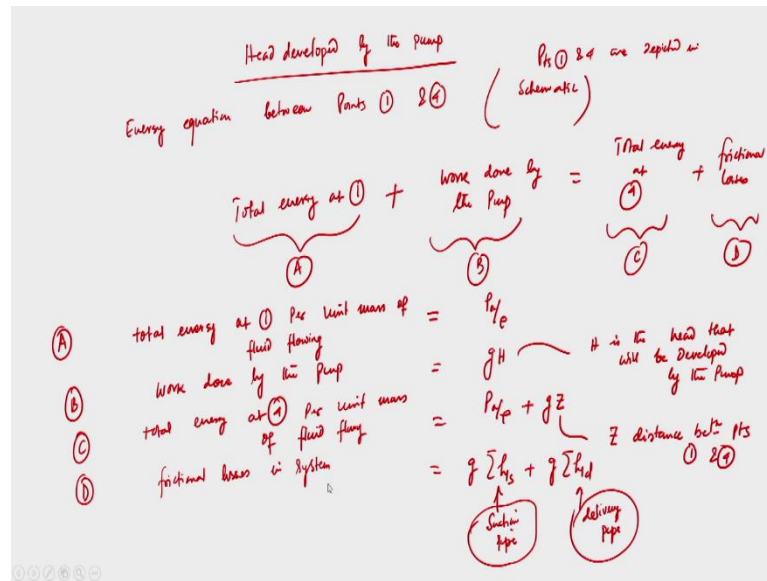 Head developed by the pump
Energy equation between Points ① & ④ ( Pts ① & 4 are depicted in Schematic )
Total energy at ① + Work done by the Pump = Total energy at ④ + frictional losses
Ⓐ Ⓑ Ⓒ Ⓓ
Ⓐ total energy at ① Per unit mass of fluid flowing = Pa/ρ
Ⓑ Work done by the Pump = gH H is the head that will be Developed by the Pump
Ⓒ total energy at ④ Per unit mass of fluid flwing = Pa/ρ + gZ Z distance betn Pts ① & ④
Ⓓ frictional losses in System = g Σhls + g Σhld
Suction pipe
delivery pipe